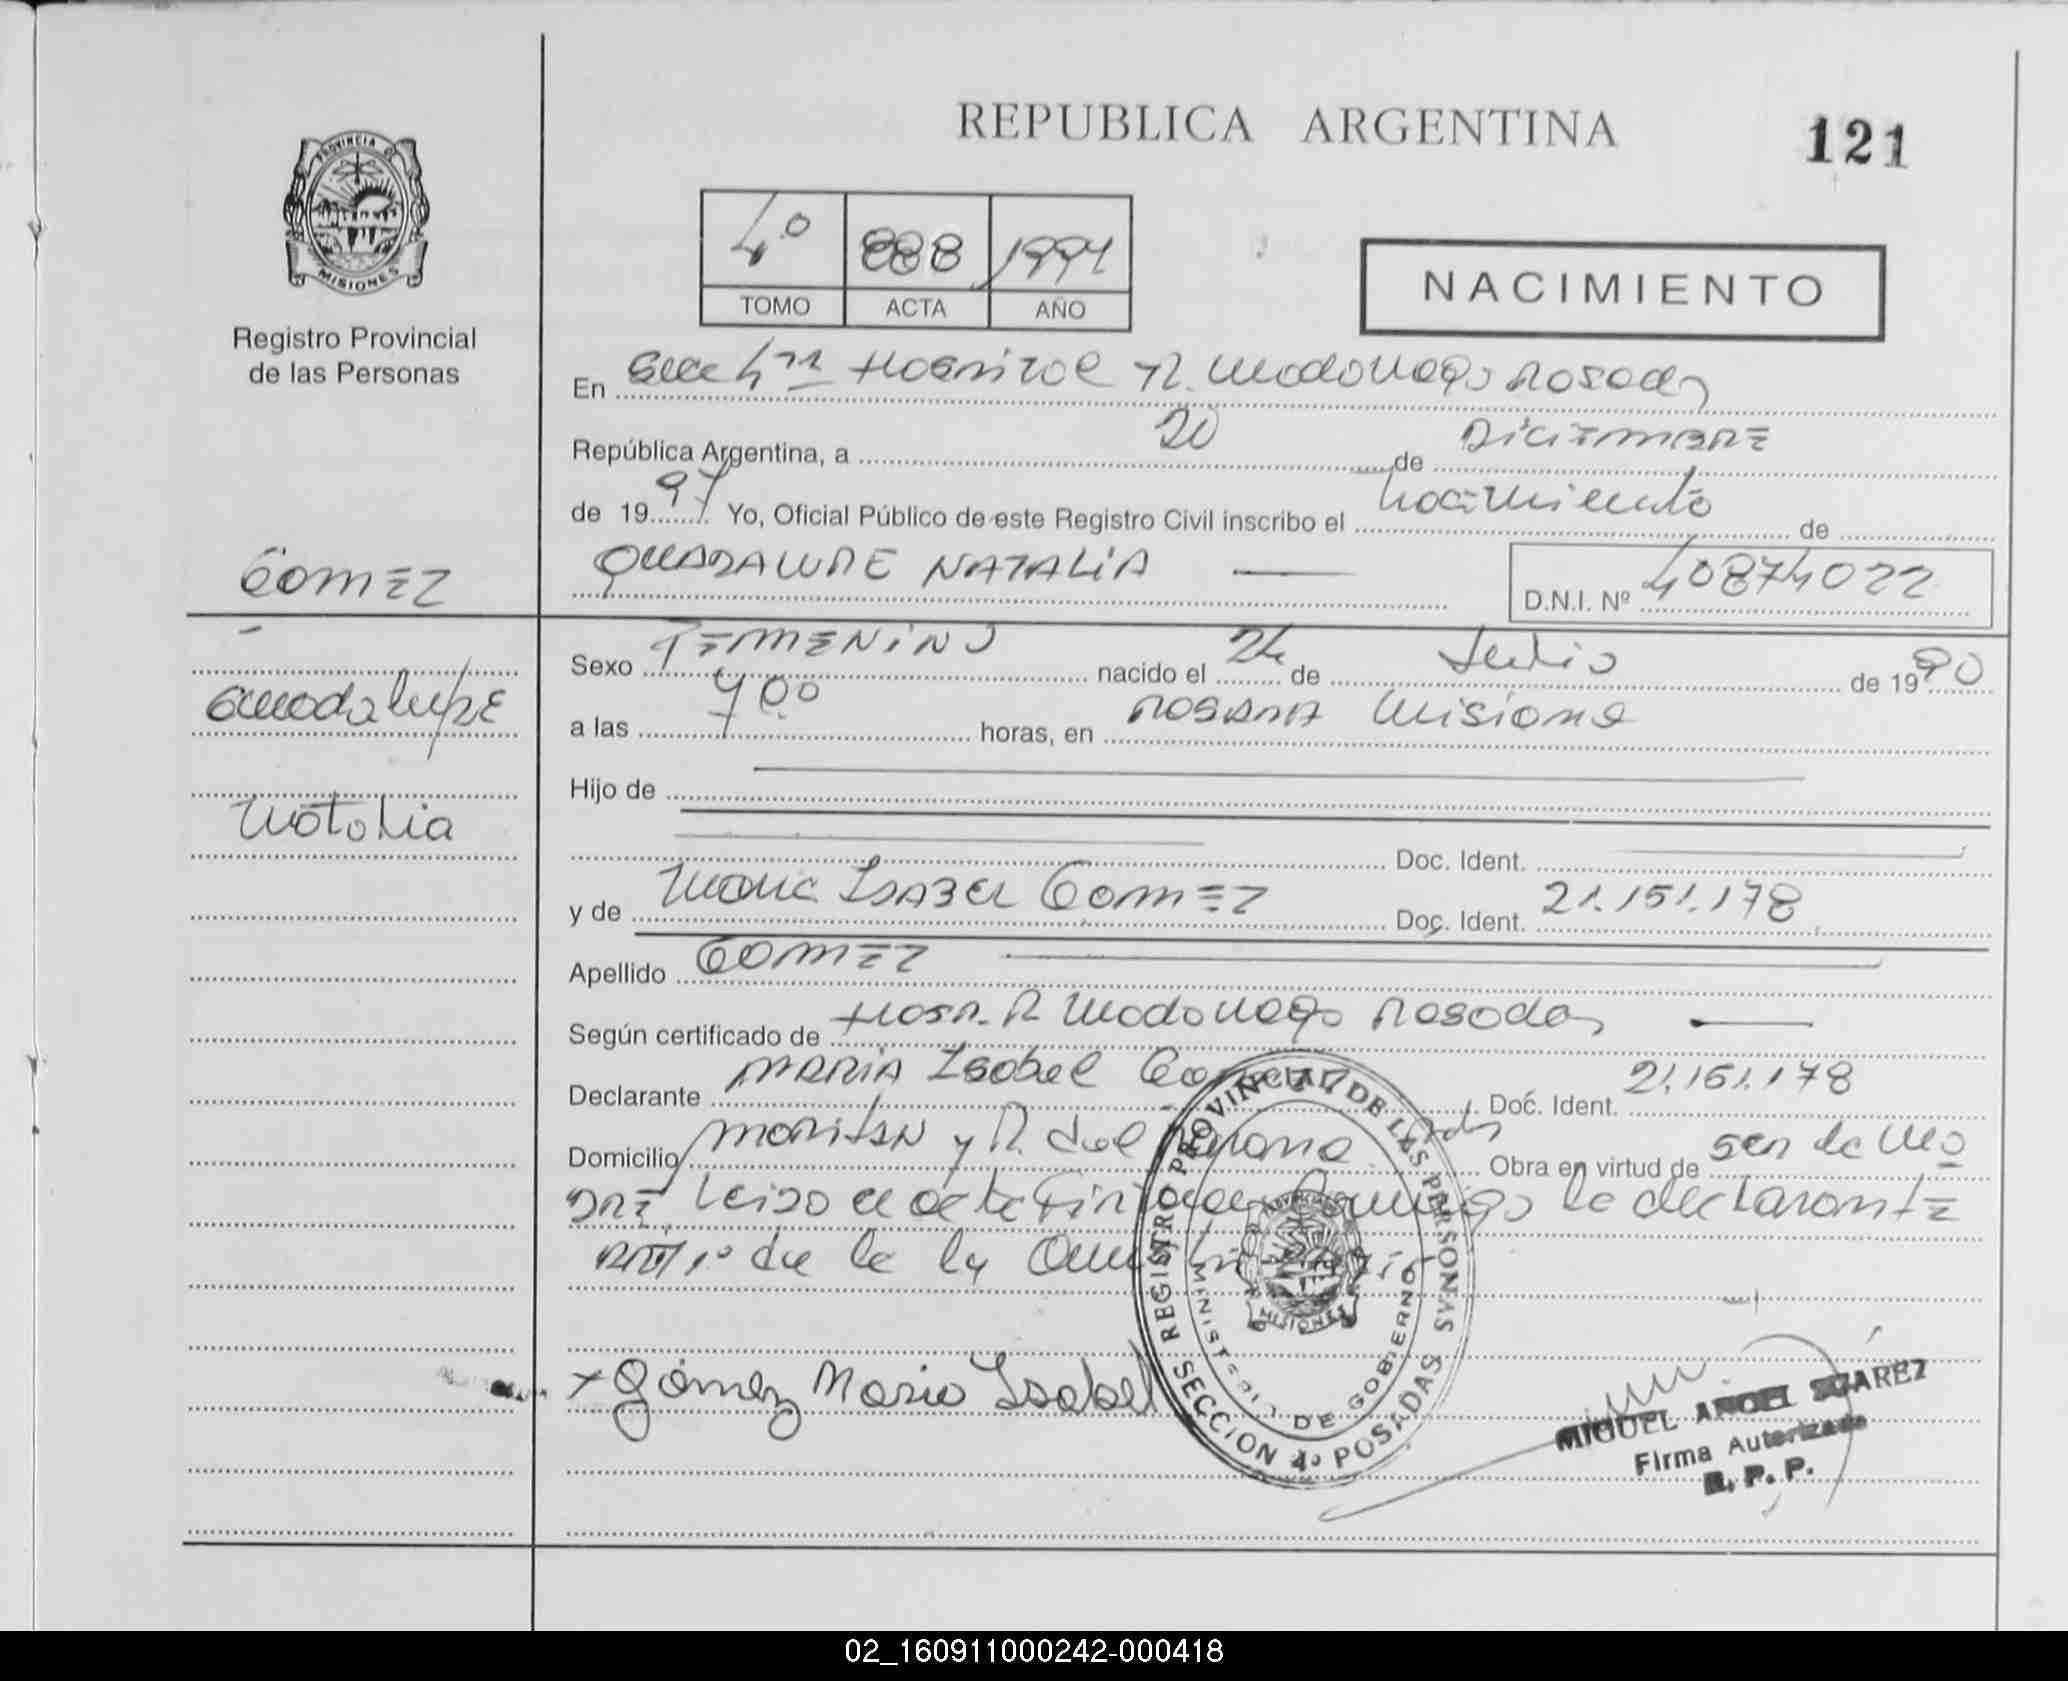 REPUBLICA ARGENTINA
121
PROVINCIA DE
MISIONES
Registro Provincial
de las Personas
4º 888 1997
TOMO ACTA AÑO
NACIMIENTO
En Secc 4ta Hospital R. Madariaga Posadas
República Argentina, a 20 de DiCiEMBRE
de 1997 Yo, Oficial Público de este Registro Civil inscribo el Nacimiento de
GUADALUPE NATALiA
D.N.I. Nº 40874022
GOMEZ
Guadalupe
Natalia
Sexo FEMENiNO nacido el 24 de Julio de 1990
a las 7 00 horas, en POSADAS Misiones
Hijo de
Doc. Ident.
y de Maria ISABEL GOMEZ Doc. Ident. 21.151.178
Apellido GOMEZ
Según certificado de Hosp. R Madariaga Posadas
Declarante MARIA Isabel Gomez Doc. Ident. 21.151.178
Domicilio y R. del Parana Pdas Obra en virtud de ser la Ma
DRE Leida el acta Firma Conmigo la declarante
de la Ley
+ Gómez Maria Isabel
REGISTRO PROVINCIAL DE LAS PERSONAS
MINISTERIO DE GOBIERNO
MISIONES
SECCION 4º POSADAS
MIGUEL ANGEL SUAREZ
Firma Autorizada
R. P. P.
02_160911000242-000418